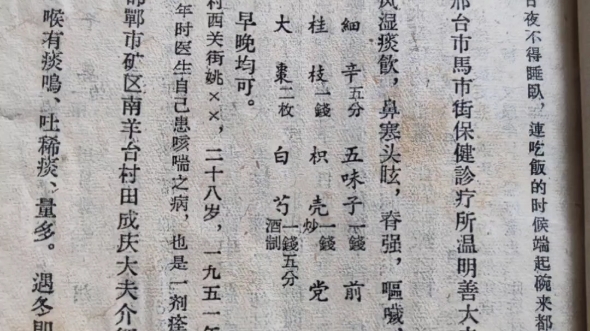 日夜不得睡臥，連吃飯的时候端起碗来都
邢台市馬市街保健診疗所温明善大
风湿痰飲，鼻塞头眩，脊强，嘔噦，
細辛五分 五味子一錢 前
桂枝一錢 枳壳炒一錢 党
大棗二枚 白芍酒制一錢五分
早晚均可。
村西关街姚××，二十八岁，一九五一年
年时医生自己患咳喘之病，也是一剂痊
邯鄲市矿区南羊台村田成庆大夫介
喉有痰鳴、吐稀痰、量多。遇冬即